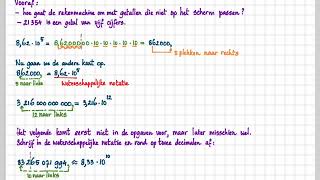 Vooraf:
- hoe gaat de rekenmachine om met getallen die niet op het scherm passen?
- 21354 is een getal van vijf cijfers.
8,62 · 10⁵ = 8,62000000 · 10 · 10 · 10 · 10 · 10 = 862000,
5 plekken naar rechts
Nu gaan we de andere kant op.
862000, = 8,62 · 10⁵
5 naar links Wetenschappelijke notatie
3 216 000 000 000 = 3,216 · 10¹²
12 naar links
Het volgende komt eerst niet in de opgaven voor, maar later misschien wel.
Schrijf in de wetenschappelijke notatie en rond op twee decimalen af:
83 265 071 994, ≈ 8,33 · 10¹⁰
10 naar links